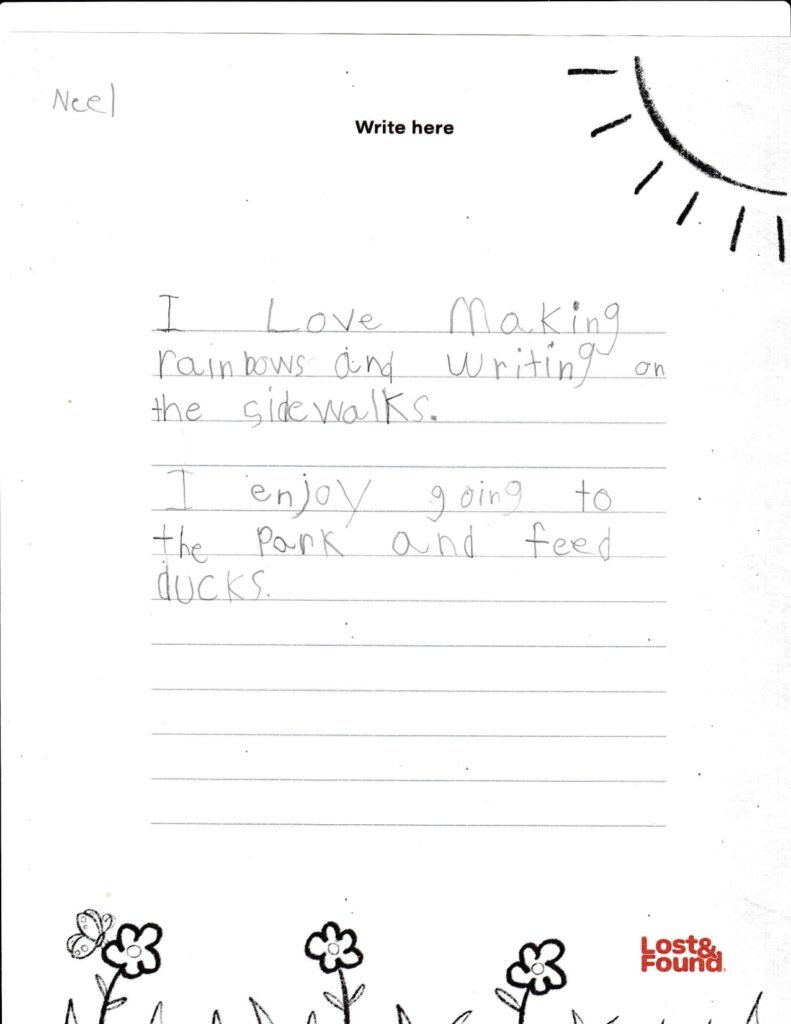 Neel
Write here
I Love Making
rainbows and writing on
the sidewalks.
I enjoy going to
the park and feed
ducks.
Lost&
Found